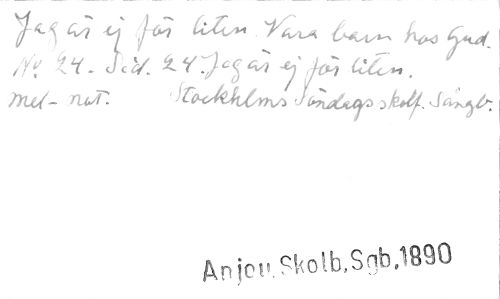 Jag är ej för liten. Vara barn hos Gud.
No 24. Sid. 24. Jag är ej för liten.
mel-not. Stockhlms Söndagsskolf. Sångb.
Anjou, Skolb, Sgb, 1890